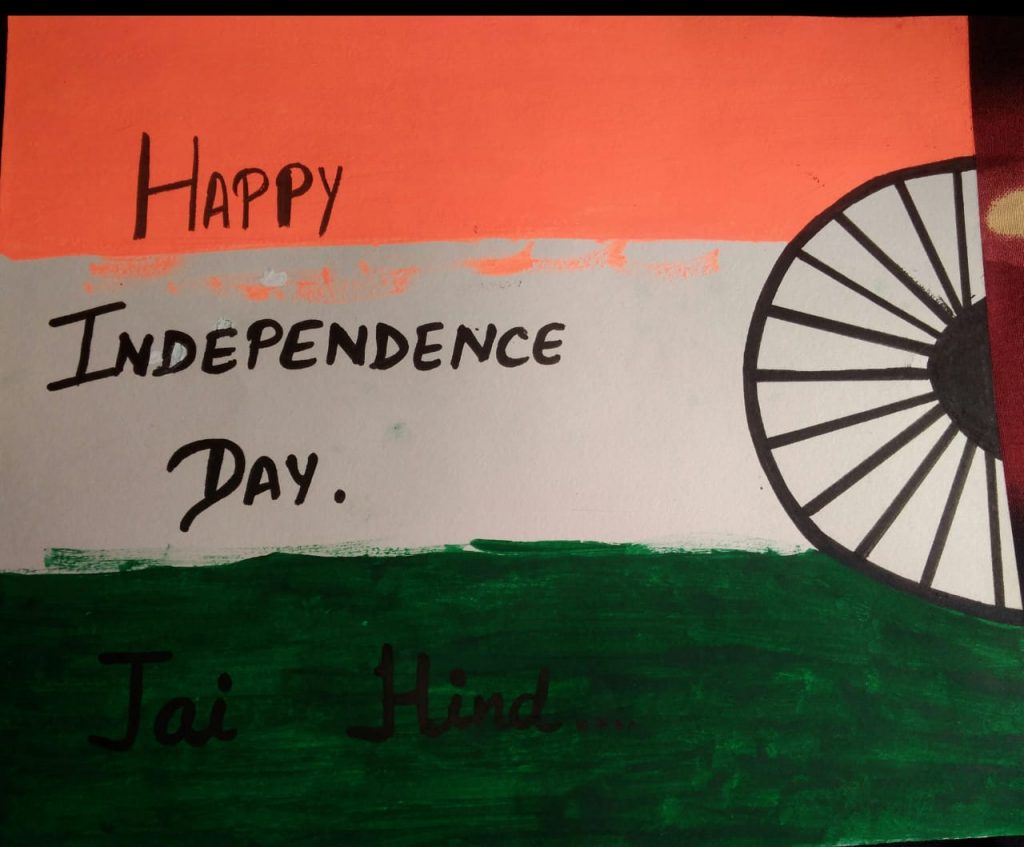 Happy
Independence
Day.
Jai Hind....